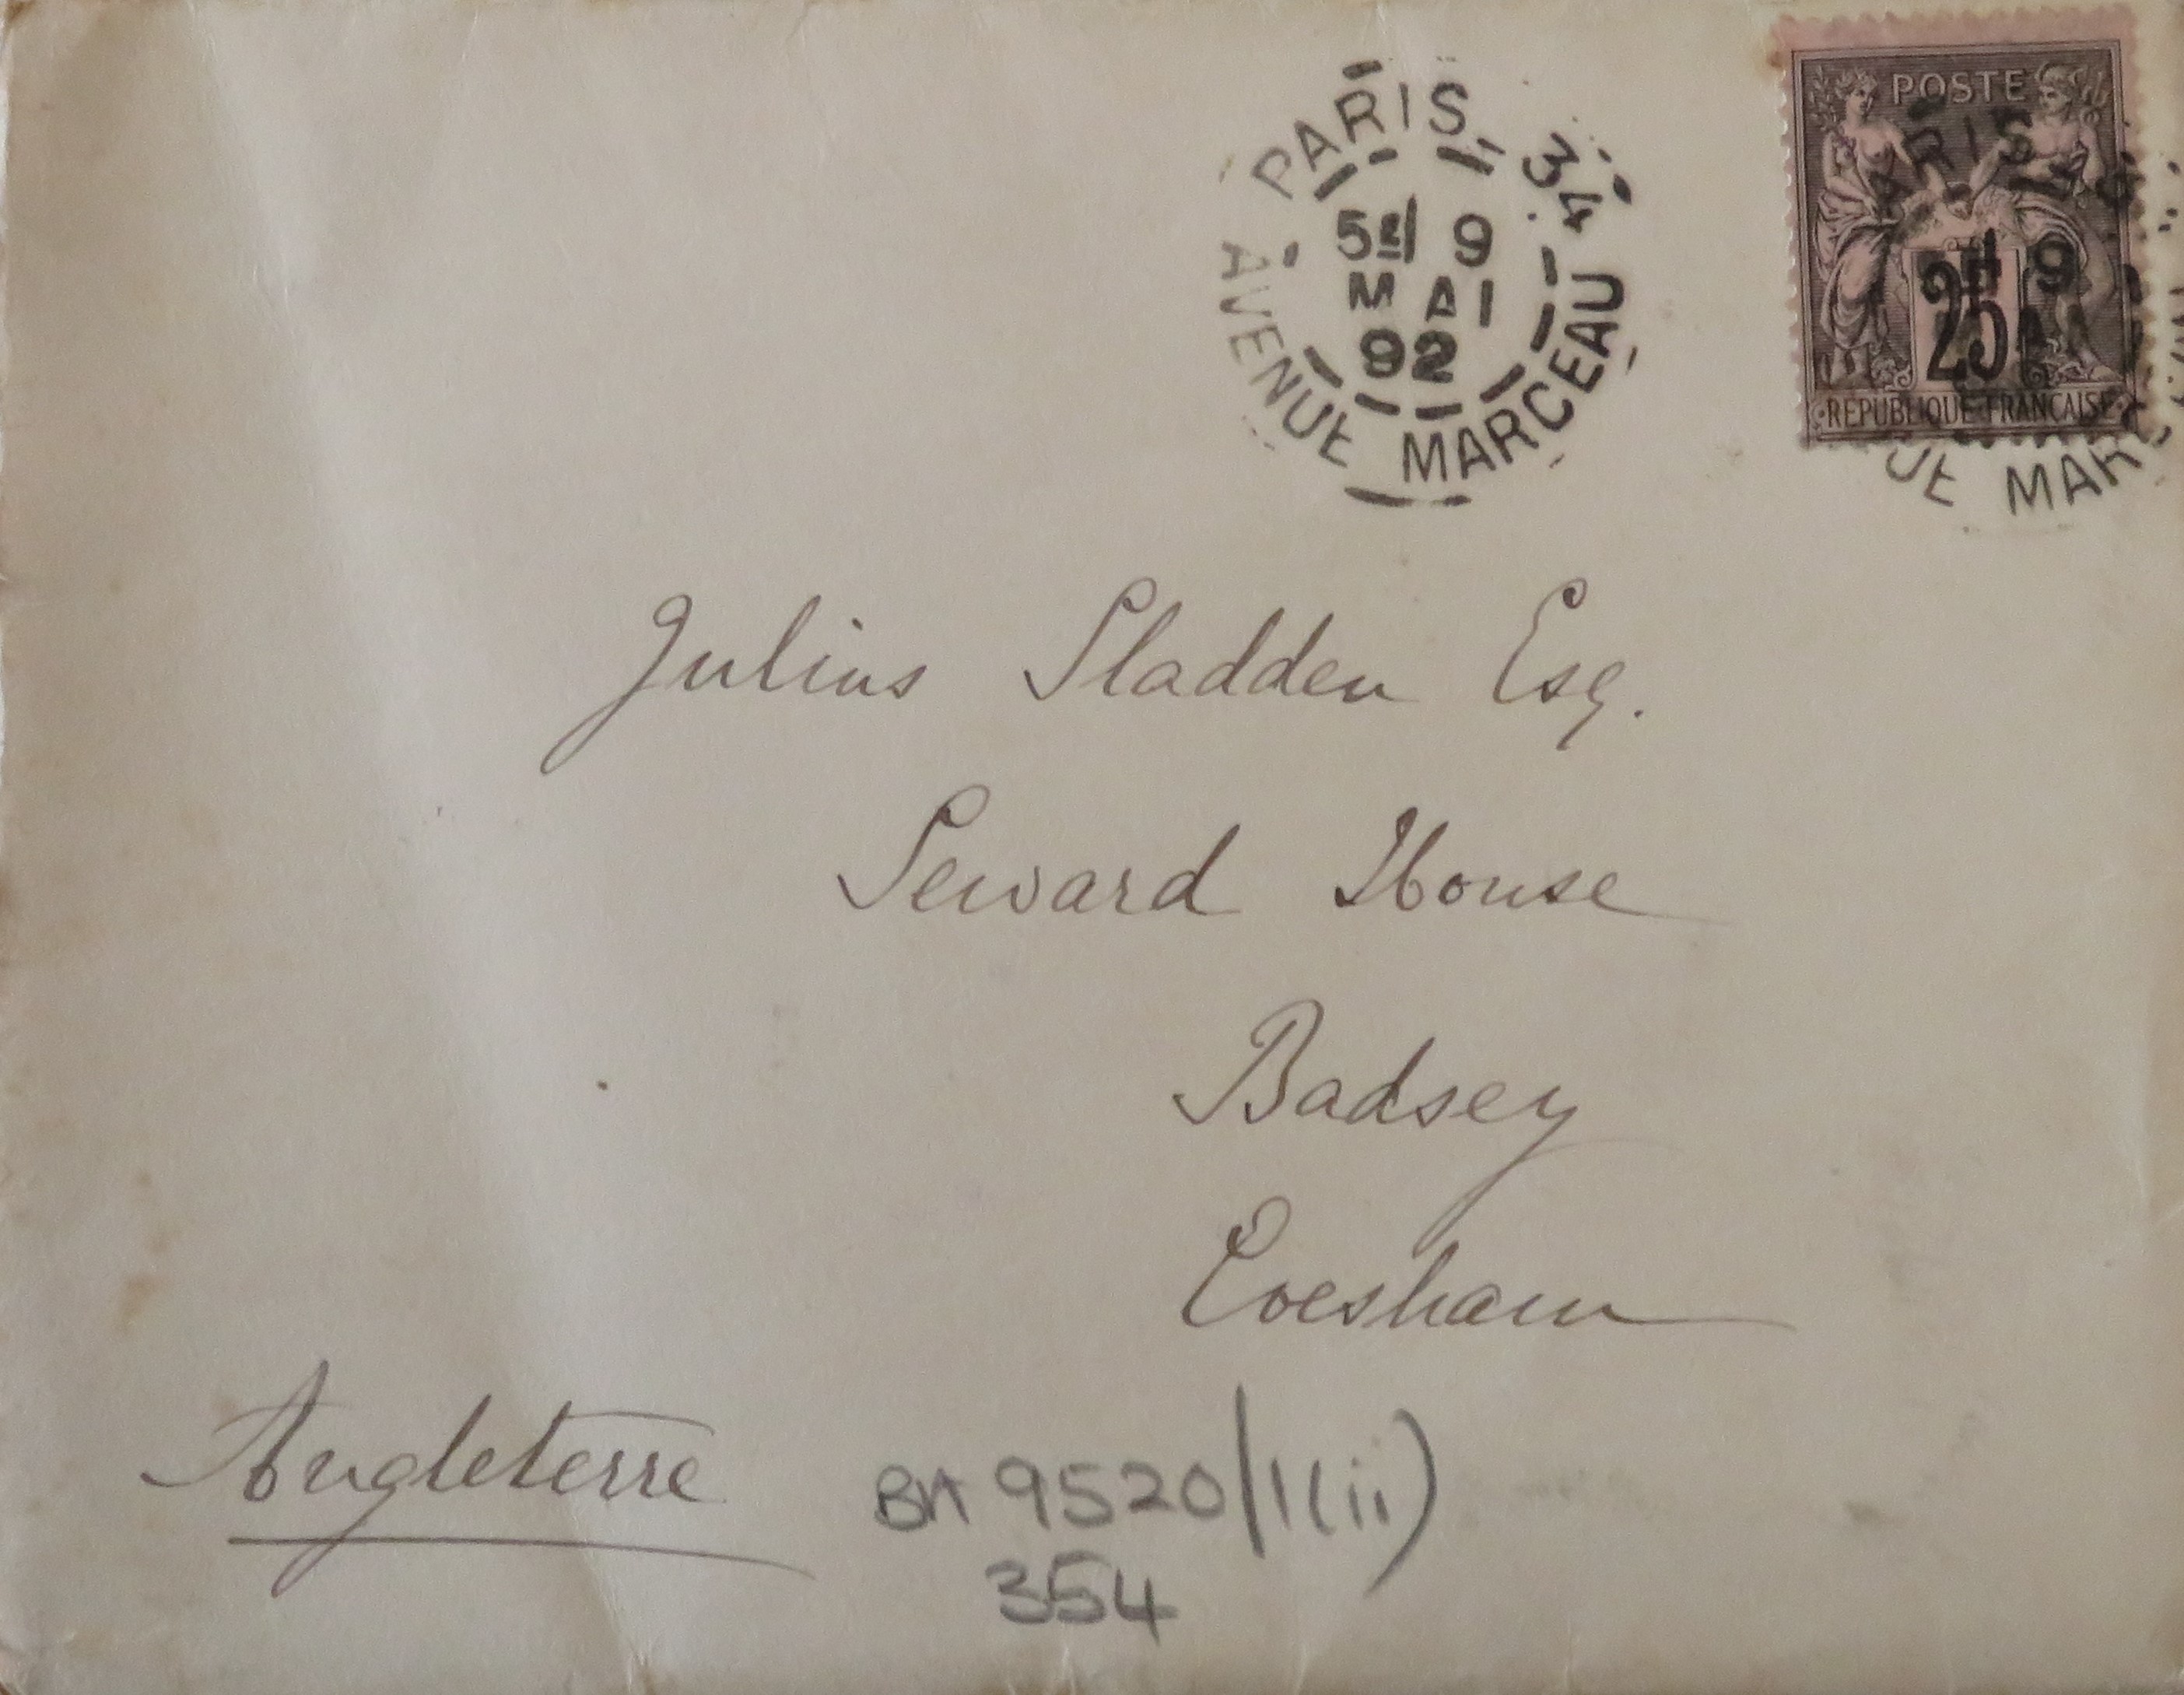 PARIS 34
5E 9
MAI
92
AVENUE MARCEAU
POSTE
ARIS
9
25
REPUBLIQUE FRANCAISE
UE MAR
Julius Sladden Esq.
Seward House
Badsey
Evesham
Angleterre
BA 9520/1(ii)
354